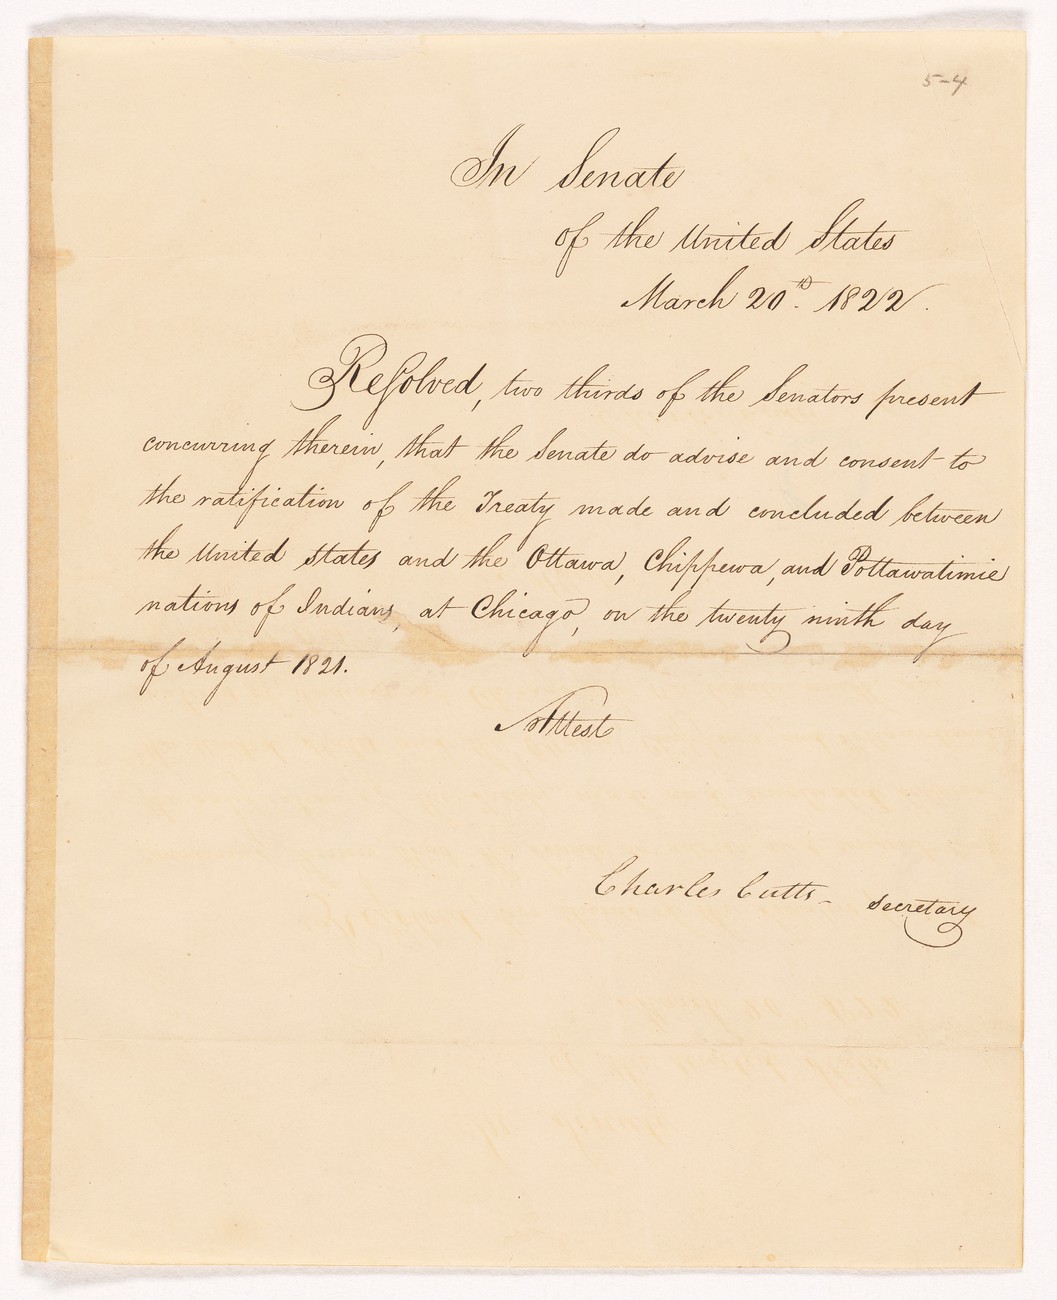 5-4
In Senate
of the United States
March 20th. 1822.
Resolved, two thirds of the Senators present
concurring therein, that the Senate do advise and consent to
the ratification of the Treaty made and concluded between
the United States and the Ottawa, Chippewa, and Pottawatimie
nations of Indians, at Chicago, on the twenty ninth day
of August 1821.
Attest
Charles Cutts - Secretary